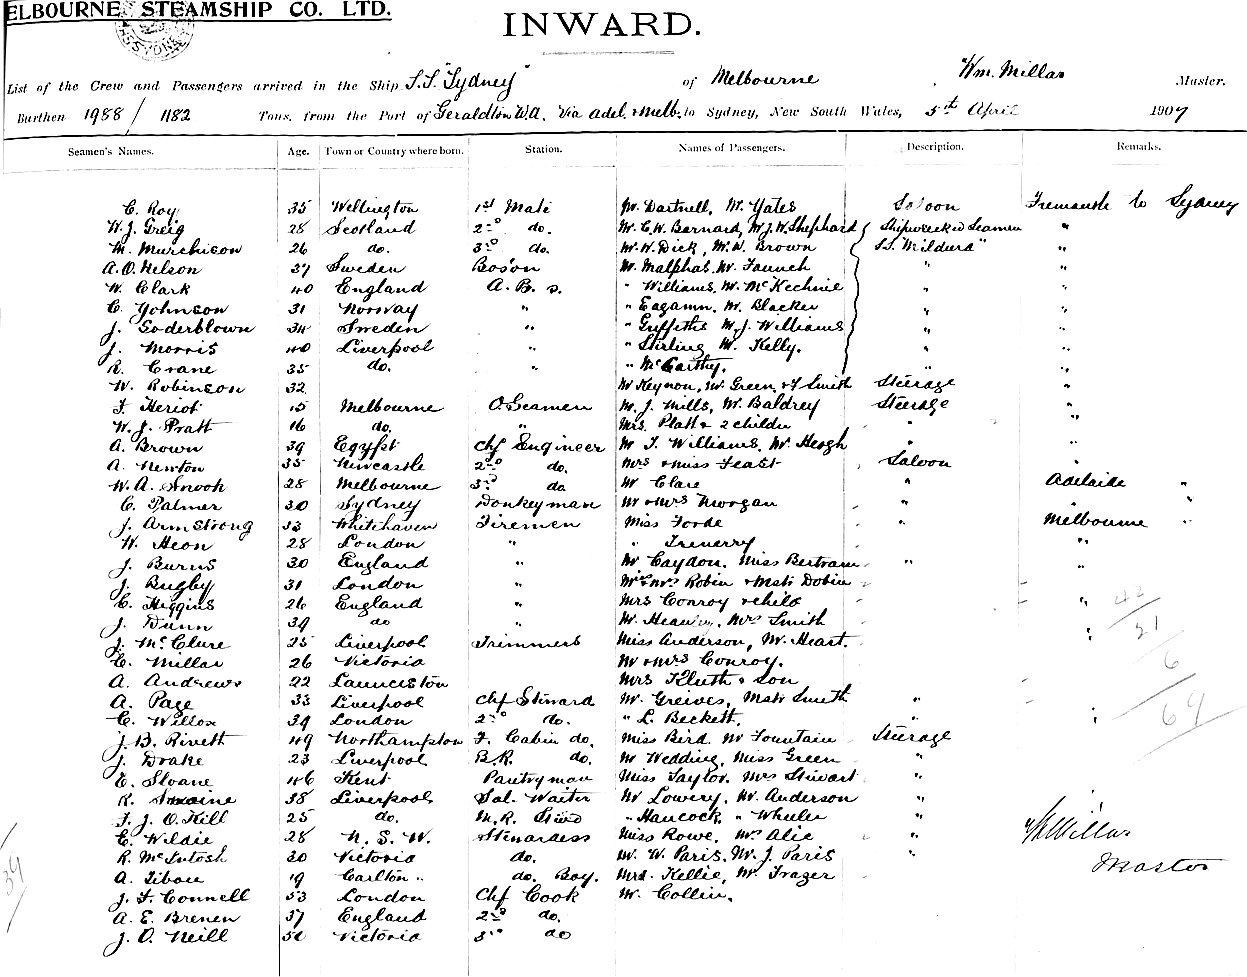 ELBOURNE STEAMSHIP CO. LTD.
INWARD.
List of the Crew and Passengers arrived in the Ship S.S. "Sydney" of Melbourne, Wm. Millar Master.
Burthen 1988 / 1182 Tons, from the Port of Geraldton W.A. Via Adel. & Melb. to Sydney, New South Wales, 5th April 1907
Seamen's Names. Age. Town or Country where born. Station. Names of Passengers. Description. Remarks.
C. Roy 35 Wellington 1st Mate Mr. Dartnell, Mr. Yates Saloon Fremantle to Sydney
W. J. Greig 28 Scotland 2nd do. Mr. C. W. Barnard, Mr. J. W. Shephard Shipwrecked Seamen "
M. Murchison 26 do. 3rd do. Mr. W. Dick, Mr. W. Brown S.S. Mildura" "
A. O. Nelson 37 Sweden Bos'on Mr. Malphas, Mr. " "
W. Clark 40 England A. B. s. " Williams, Mr. McKechnie " "
C. Yohnson 31 Norway " " Eagamn, Mr. Blacker " "
J. Soderblown 34 Sweden " " Griffiths Mr. J. Williams " "
J. Morris 40 Liverpool " " Stirling Mr. Kelly. " "
R. Crane 35 do. " " McCarthy. " "
W. Robinson 32 Mr Keynon, Mr. Green, & F Smith Steerage "
F. Heriot 15 Melbourne O. Seamen Mr. J. Mills, Mr. Baldrey Steerage "
W. J. Pratt 16 do. " Mrs. Platt & 2 childn " "
A. Brown 39 Egypt Chf Engineer Mr T. Williams, Mr. Heogh " "
A. Newton 35 Newcastle 2nd do. Mrs & Miss Feast Saloon "
W. A. Snook 28 Melbourne 3rd do Mr Clare " Adelaide "
C. Palmer 30 Sydney Donkeyman Mr & Mrs Morgan "
J. Armstrong 33 Whitehaven Firemen Miss Forde " Melbourne "
W. Heon 28 London " " Trenerry "
J. Burns 30 England " Mr Caydon, Miss Bertram "
J. Bugby 31 London " Mr & Mrs Robin & Mstr Dobin
C. Higgins 26 England " Mrs Conroy & child "
J. Dunn 39 do " Mr. Mrs Smith
J. McClure 25 Liverpool Trimmers Miss Anderson, Mr. Heart. "
C. Millar 26 Victoria Mr & Mrs Conroy.
A. Andrews 22 Launceston Mrs Kluth & son
A. Page 33 Liverpool Chf Steward Mr. Greives, Mstr Smith "
C. Willox 39 London 2nd do. " L. Beckett. " "
J. B. Rivett 49 Northampton F. Cabin do. Miss Bird. Mr Fountain Steerage
J. Drake 23 Liverpool B.R. do. Mr Wedding, Miss Green "
E. Sloane 46 Kent Pantryman Miss Taylor. Mrs Stewart "
R. 38 Liverpool Sal. Waiter Mr Lowery, Mr. Anderson "
F. J. O. Hill 25 do. M.R. " Hancock, " Wheeler "
C. Wildie 28 N. S. W. Stewardess Miss Rowe, Mrs Alie "
R. McIntosh 30 Victoria do. Mr. W. Paris, Mr. J. Paris "
A. 19 Carlton " do. Boy. Mrs. Kellie, Mr. Frazer
J. F. Connell 53 London Chf Cook Mr. Collin.
A. E. Brenen 37 England 2nd do.
J. O. Neill 50 Victoria 3rd do
42
21
6
69
WMillar
Master
39